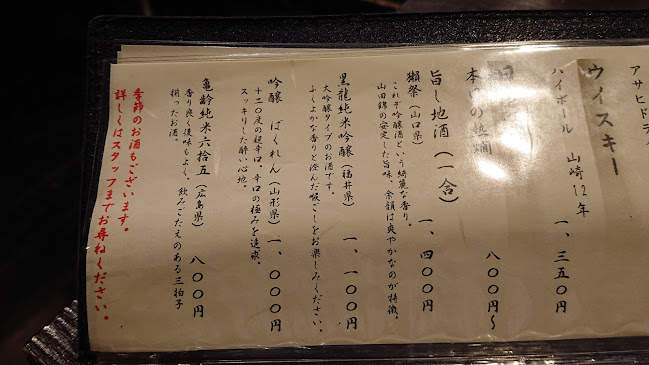 アサヒドラ
ウイスキー
ハイボール 山崎12年 一、三五〇円
本日の熱燗 八〇〇円〜
旨し地酒（一合）
獺祭（山口県） 一、四〇〇円
これぞ吟醸酒という綺麗な香り。
山田錦の安定した旨味、余韻は爽やかなのが特徴。
黒龍純米吟醸（福井県） 一、一〇〇円
大吟醸タイプのお酒です。
ふくよかな香りと澄んだ喉ごしをお楽しみください。
吟醸 ばくれん（山形県） 一、〇〇〇円
十二〇度の超辛口。辛口の極みを追求。
スッキリした酔い心地。
亀齢純米六拾五（広島県） 八〇〇円
香り良く後味もよく、飲みごたえのある三拍子
揃ったお酒。
季節のお酒もございます。
詳しくはスタッフまでお尋ねください。